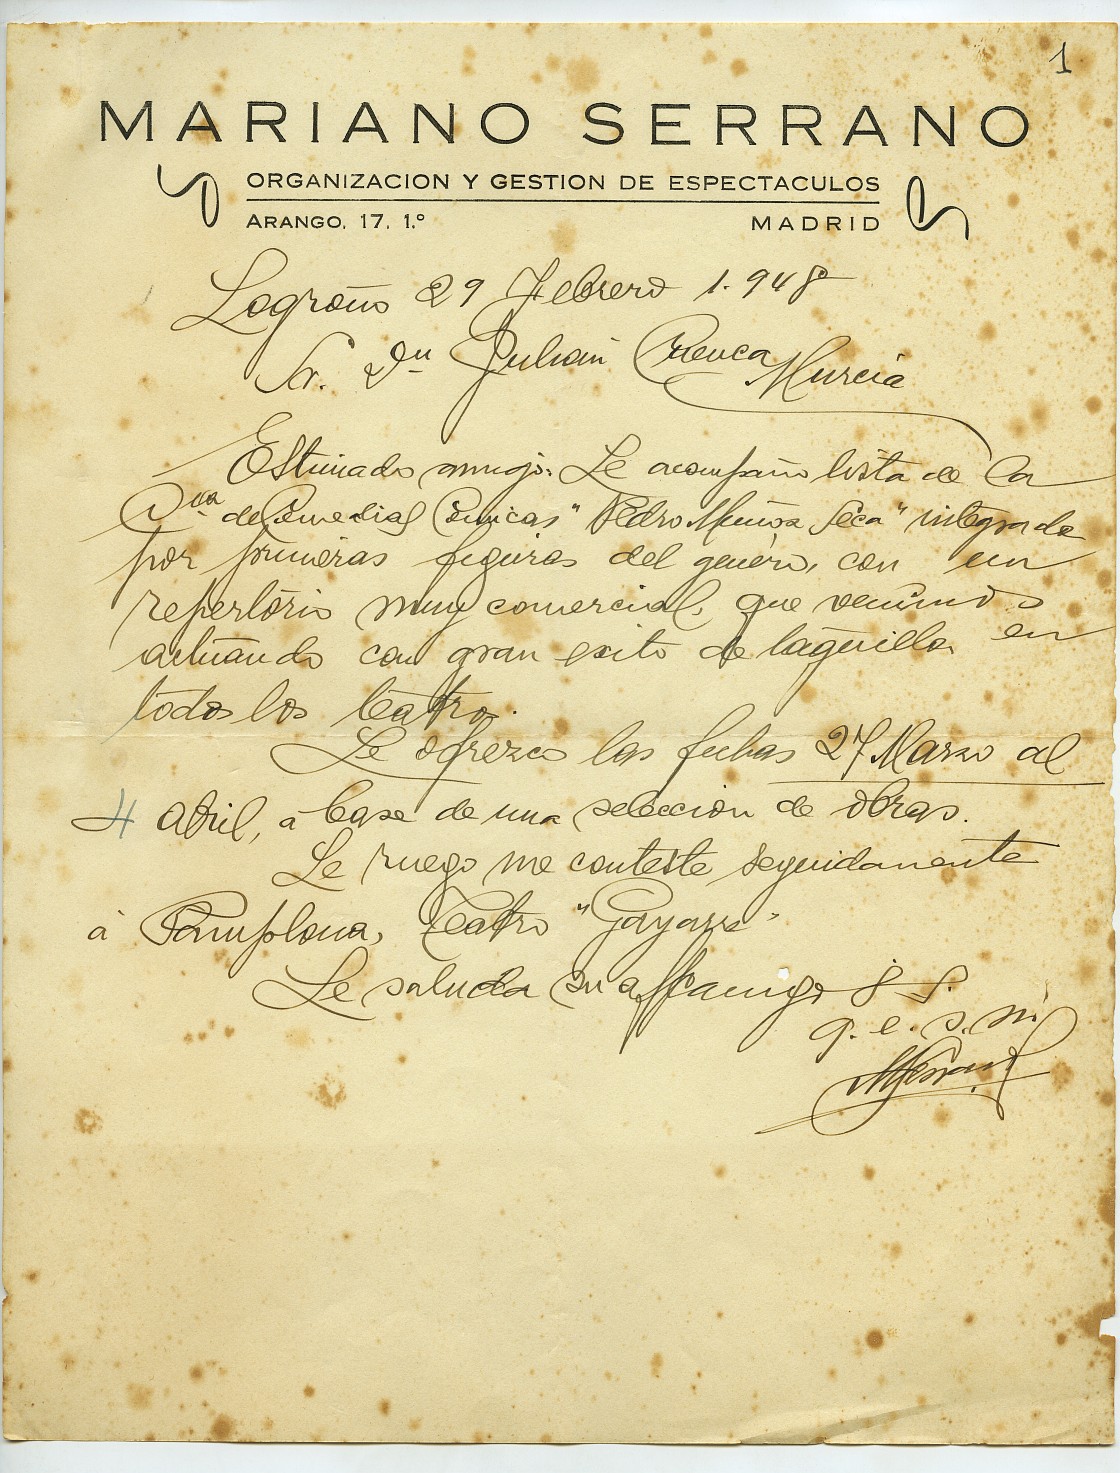 1
MARIANO SERRANO
ORGANIZACION Y GESTION DE ESPECTACULOS
ARANGO, 17, 1.º MADRID
Logroño 29 Febrero 1.948
Sr. Dn Julián Cuenca
Murcia
Estimado amigo: Le acompaño lista de la
Cia de Comedias Cómicas "Pedro Muñoz Seca" integrada
por primeras figuras del género, con un
repertorio muy comercial, que venimos
actuando con gran exito de taquilla en
todos los teatros.
Le ofrezco las fechas 27 Marzo al
4 abril, á base de una selección de obras.
Le ruego me conteste seguidamente
á Pamplona, Teatro "Gayarre"
Le saluda su aff amigo S. S.
q. e. s. m.
MSerrano